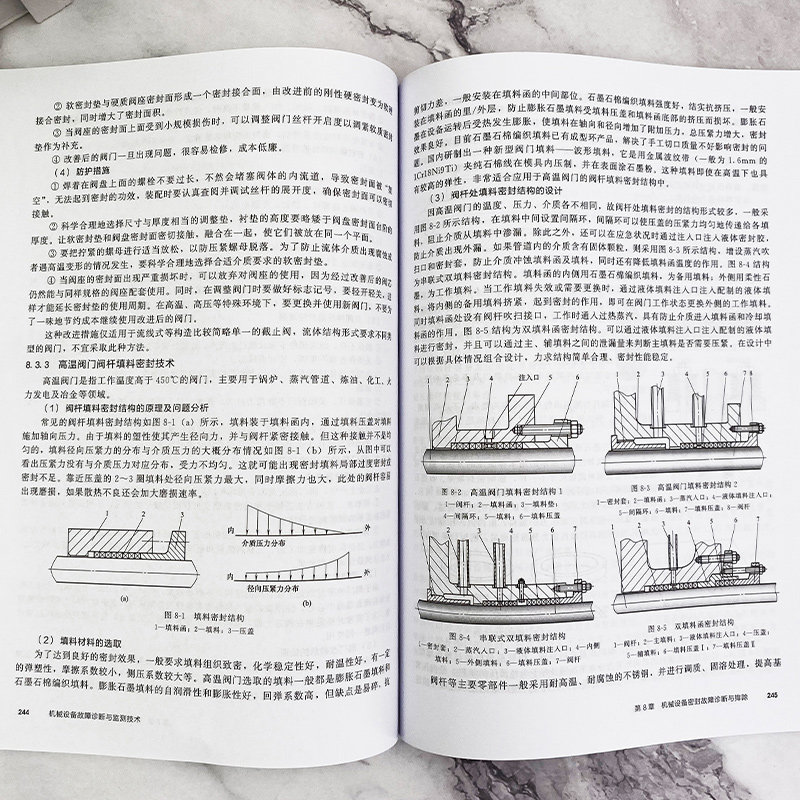 ② 软密封垫与硬质阀座密封面形成一个密封接合面，由改进前的刚性硬密封变为软
接合密封，同时增大了密封面积。
③ 当阀座的密封面上受到小规模损伤时，可以调整阀门丝杆开启度以调紧软质密封
垫作为补充。
④ 改善后的阀门一旦出现问题，很容易检修，成本低廉。
（4）防护措施
① 焊着在阀盘上面的螺栓不要过长，不然会堵塞阀体的内流道，导致密封面被“
空”，无法起到密封的功效，装配时要认真查阅并调试丝杆的展开度，确保密封面可以密切
接触。
② 科学合理地选择尺寸与厚度相当的调整垫，衬垫的高度要略矮于阀盘密封面台阶的
厚度。让软密封垫和阀盘密封面密切接触，融合在一起，使它们被放在同一个平面。
③ 要把拧紧的螺母进行适当放松，以防压紧螺母脱落。为了防止流体介质出现腐蚀或
者遇高温变形的情况发生，要科学合理地选择合适介质要求的软密封垫。
④ 当阀座的密封面出现严重损坏时，可以放弃对阀座的使用，因为经过改善后的阀芯
仍然能与同样规格的阀座配套使用。同时，在调整阀门时要做好标志记号，要轻开轻关，这
样才能延长密封垫的使用周期。在高温、高压等特殊环境下，要更换并使用新阀门，不要为
了一味地节约成本继续使用改进后的阀门。
这种改进措施仅适用于流线式等构造比较简略单一的截止阀，流体结构形式要求不同类
型的阀门，不宜采取此种方法。
8.3.3 高温阀门阀杆填料密封技术
高温阀门是指工作温度高于450℃的阀门，主要用于锅炉、蒸汽管道、炼油、化工、火
力发电及冶金等领域。
（1）阀杆填料密封结构的原理及问题分析
常见的阀杆填料密封结构如图8-1（a）所示，填料装于填料函内，通过填料压盖对填料
施加轴向压力。由于填料的塑性使其产生径向力，并与阀杆紧密接触。但这种接触并不是均
匀的，填料径向压紧力的分布与介质压力的大概分布情况如图8-1（b）所示，从图中可以
看出压紧力没有与介质压力对应分布，受力不均匀。这就可能出现密封填料局部过度密封或
密封不足。靠近压盖的2～3圈填料处径向压紧力最大，同时摩擦力也大，此处的阀杆容易
出现磨损，如果散热不良还会加大磨损速率。
1
2
3
内
外
介质压力分布
内
外
径向压紧力分布
(a)
(b)
图8-1 填料密封结构
1—填料函；2—填料；3—压盖
（2）填料材料的选取
为了达到良好的密封效果，一般要求填料组织致密，化学稳定性好，耐温性好，有一定
的弹塑性，摩擦系数较小，侧压系数较大等。高温阀门选取的填料一般都是膨胀石墨填料和
石墨石棉编织填料。膨胀石墨填料的自润滑性和膨胀性好，回弹系数高，但缺点是易碎，抗
244 机械设备故障诊断与监测技术
剪切力差，一般安装在填料函的中间部位。石墨石棉编织填料强度好，结实抗挤压，一般安
装在填料函的里/外层，防止膨胀石墨填料受填料压盖和填料函底部的挤压而损坏。膨胀石
墨在设备运转后受热发生膨胀，使填料在轴向和径向增加了附加压力，总压紧力增大，密封
效果良好。目前石墨石棉编织填料已有成型环产品，解决了手工切口质量不好影响密封的问
题。国内研制出一种新型阀门填料——波形填料，它是用金属波纹带（一般为1.6mm的
1Cr18Ni9Ti）夹纯石棉线在模具内压制，并在表面涂石墨粉。这种填料即使在高温下也具
有较高的弹性，非常适合应用于高温阀门的阀杆填料密封结构中。
（3）阀杆处填料密封结构的设计
因高温阀门的温度、压力、介质各不相同，故阀杆处填料密封的结构形式较多，一般采
用图8-2所示结构，在填料中间设置间隔环，间隔环可以使压盖的压紧力均匀地传递给各填
料，阻止介质从填料中渗漏。除此之外，还可以在应急状况时通过注入口注入液体密封胶，
防止介质出现外漏。如果管道内的介质含有固体颗粒，则采用图8-3所示结构，增设蒸汽吹
扫口和密封套，防止介质冲蚀填料函及填料，同时还有降低填料函温度的作用。图8-4结构
为串联式双填料密封结构。填料函的内侧用石墨石棉编织填料，为备用填料；外侧用柔性石
墨，为工作填料。当工作填料失效或需要更换时，通过液体填料注入口注入配制的液体填
料，将内侧的备用填料挤紧，起到密封的作用，即可在阀门工作状态更换外侧的工作填料。
同时填料函处设有阀杆吹扫接口，工作时通入过热蒸汽，具有防止介质进入填料函和冷却填
料函的作用。图8-5结构为双填料函密封结构。可以通过液体填料注入口注入配制的液体填
料进行密封，并且可以通过主、辅填料之间的泄漏量来判断主填料是否需要压紧。在设计中
可以根据具体情况组合设计，力求结构简单合理、密封性能稳定。
1 2 3 4 注入口 5 6
1 2 3 4 5 6 7 8
图8-2 高温阀门填料密封结构1
1—阀杆；2—填料函；3—填料垫；
4—间隔环；5—填料；6—填料压盖
图8-3 高温阀门填料密封结构2
1—密封套；2—填料函；3—蒸汽入口；4—液体填料注入口；
5—间隔环；6—填料；7—填料压盖；8—阀杆
1 2 3 4 5 6 7
1 2 3 4 5 6 7
图8-4 串联式双填料密封结构
1—密封套；2—蒸汽入口；3—液体填料注入口；4—内侧
填料；5—外侧填料；6—填料压盖；7—阀杆
图8-5 双填料函密封结构
1—阀杆；2—主填料；3—液体填料注入口；4—压盖；
5—辅填料；6—填料压盖Ⅰ；7—填料压盖Ⅱ
阀杆等主要零部件一般采用耐高温、耐腐蚀的不锈钢，并进行调质、固溶处理，提高基
第8章 机械设备密封故障诊断与排除 245